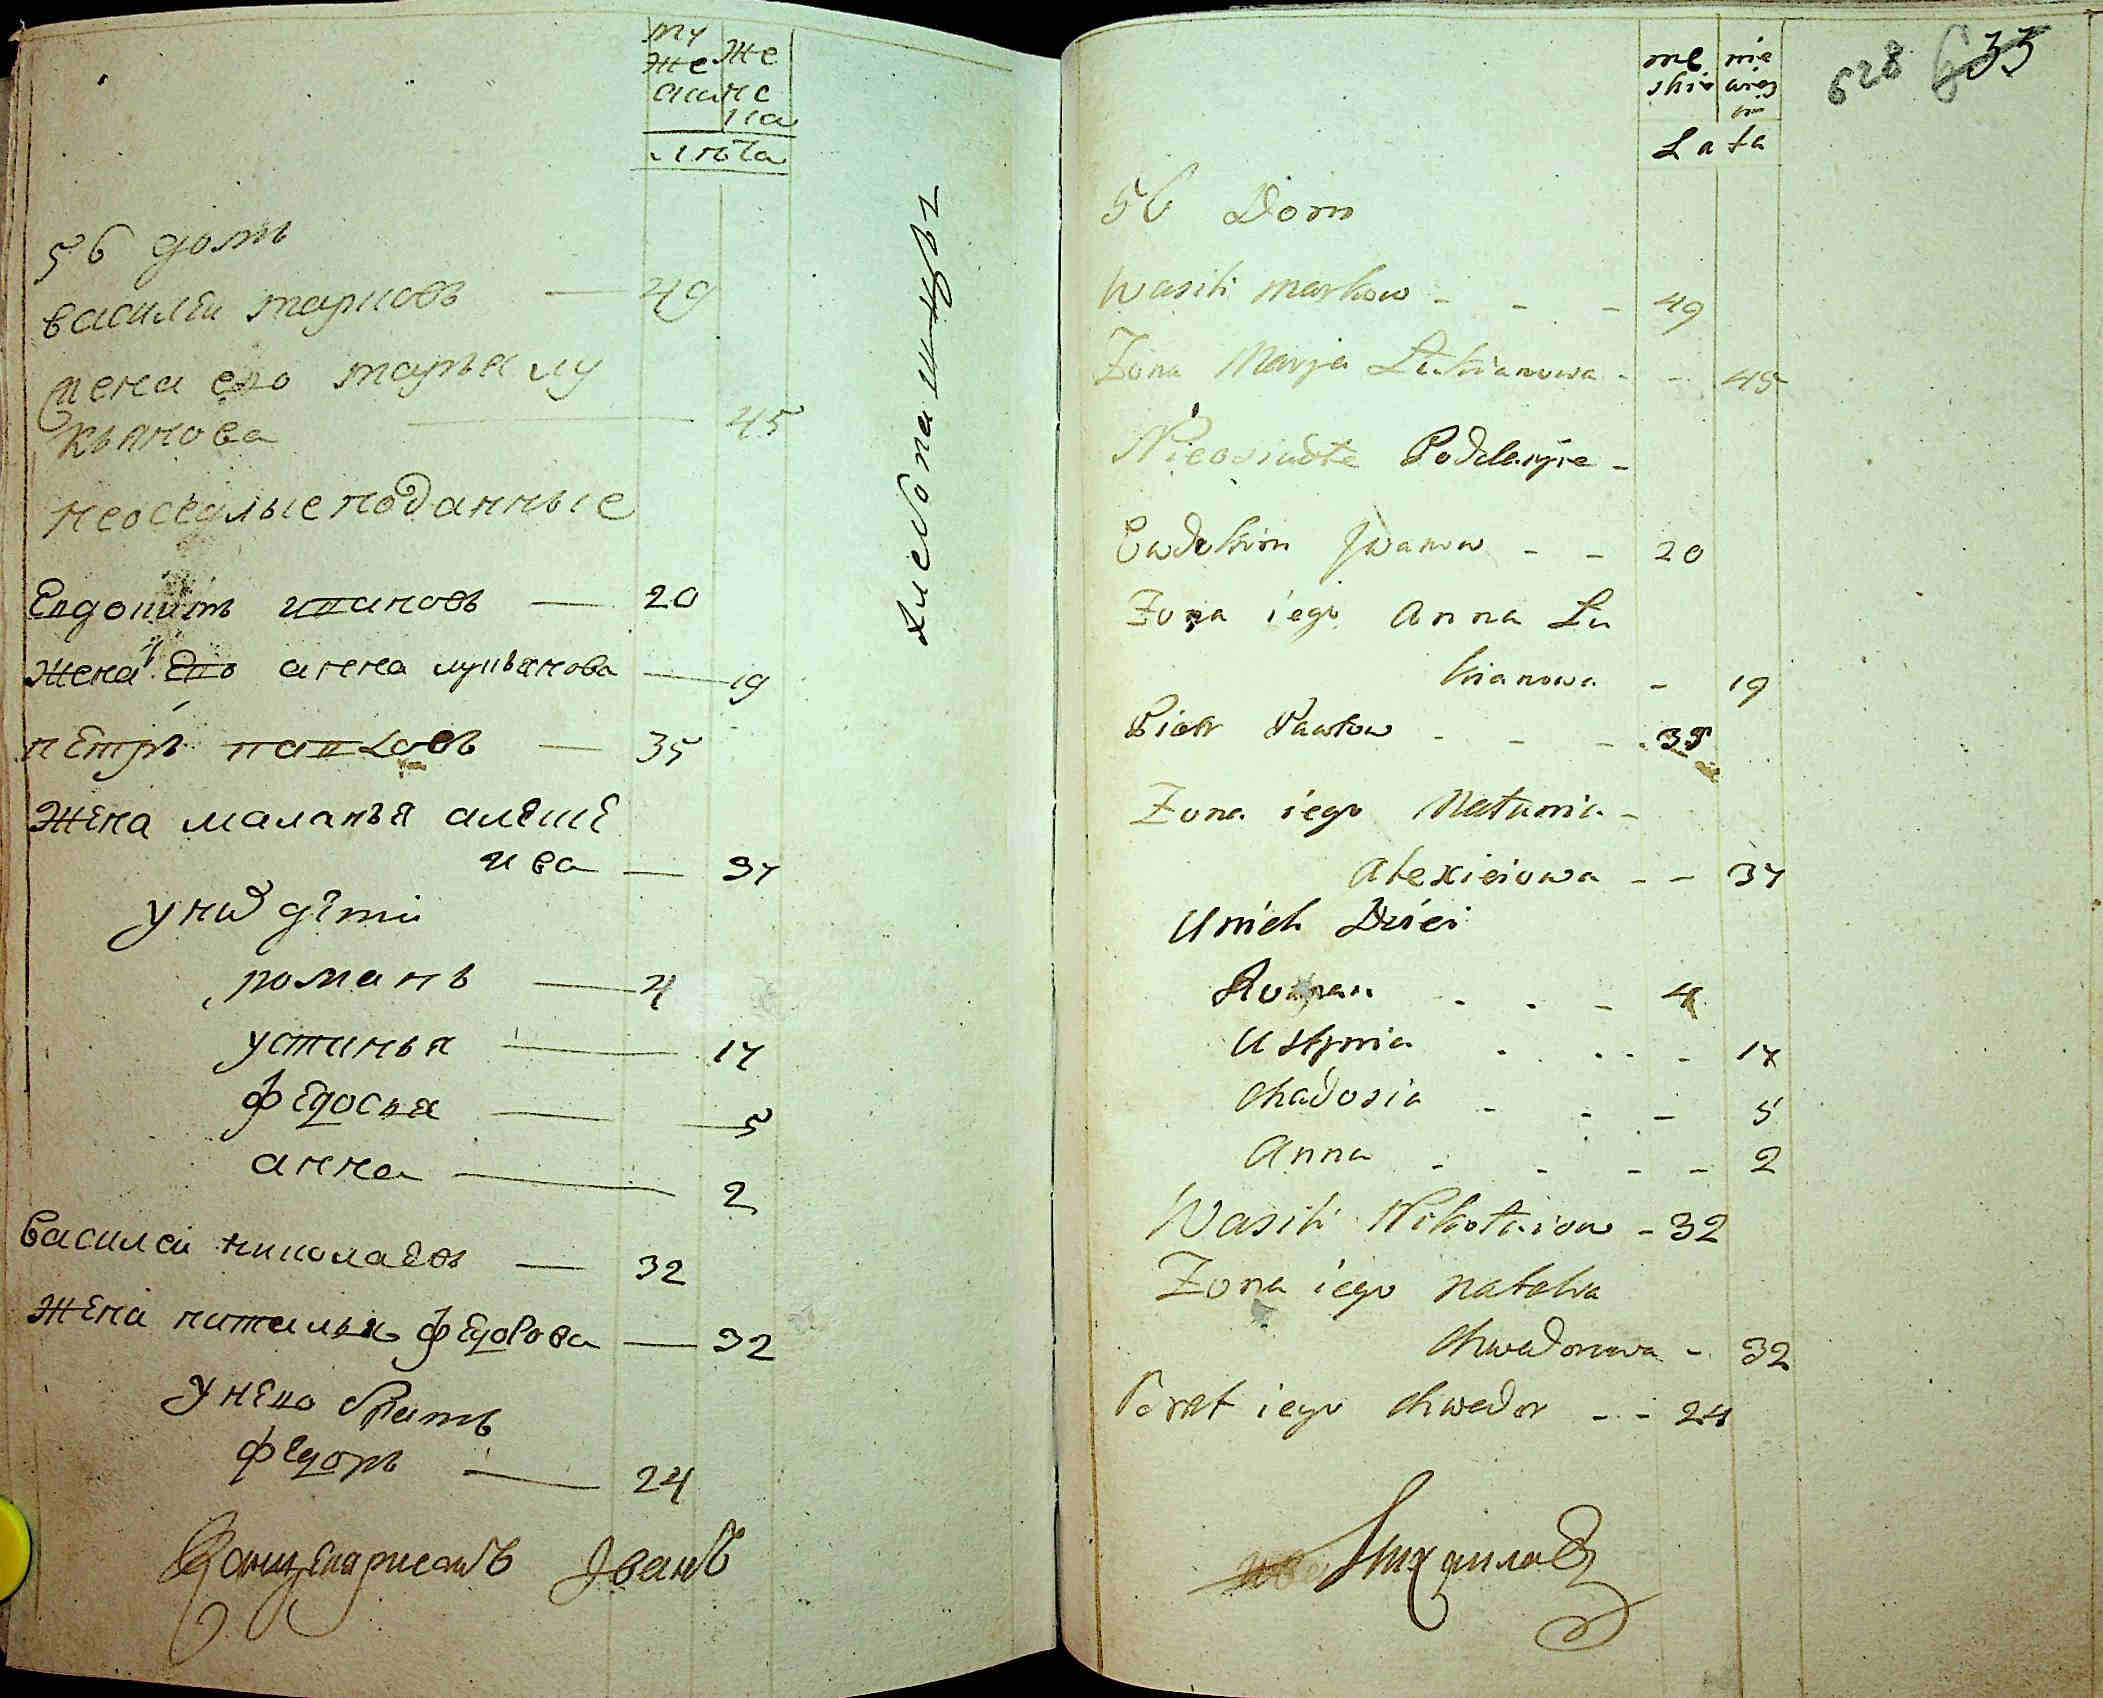 му
же
же
ска
нс
ка
лѣта
56 домъ
василеи марковъ — 49
жена его марья лу
кьянова — 45
неоседлые поданные
Евдокимъ ивановъ — 20
жена его анна лукьянова — 19
пЕтръ павловъ — 35
жЕна маланья алексѣ
ива — 37
у ниӽ дѣти
романъ — 4
устинья — 17
фЕдосья — 5
анна — 2
василеи николаевъ — 32
жЕна наталья фЕдорова — 32
у нЕго братъ
фЕдоръ — 24
Канцеляристъ Иванъ
me nie
skie wies
kie
Lata
628 633
56 Dom
Wasili markow - - - 49
Zona Marja Lukianowa - - 45
Nieosiadłe Poddanyie -
Ewdokim Jwanow - - 20
Zona iego anna Lu
kianowa - 19
Piotr Pawłow - - - 35
Zona iego Małania -
alexieiowa - - 37
U nich Dzieci
Roman - - - 4
Ustynia - - - 17
chadosia - - - 5
Anna - - - - 2
Wasili Nikołaiow - 32
Zona iego natalia
chwedorowa - 32
Brat iego chwedor - - 24
Михаилов